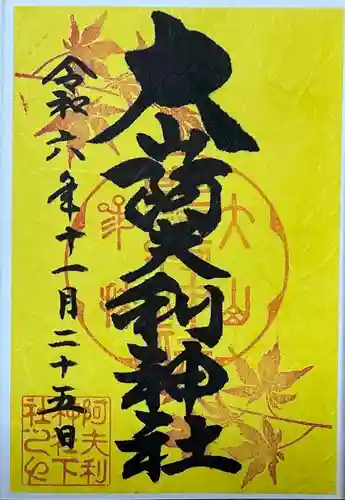 大山阿夫利神社
令和六年十一月二十五日
阿夫利
神社下
大山